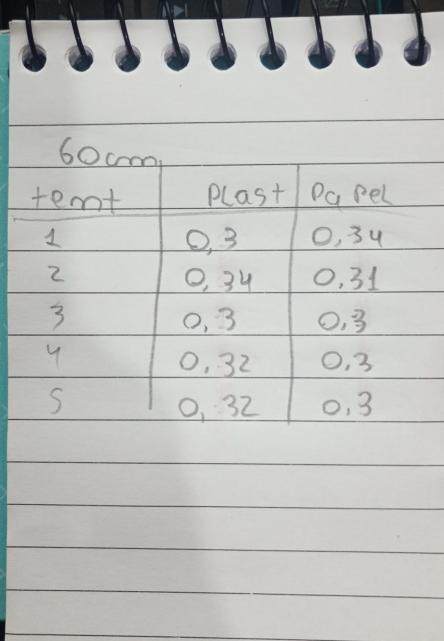 60cm
temt Plast Papel
1 0,3 0,34
2 0,34 0,31
3 0,3 0,3
4 0,32 0,3
5 0,32 0,3